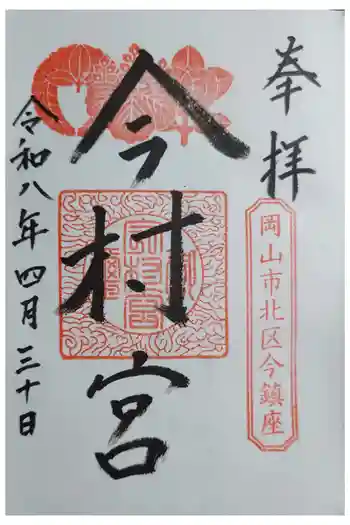 奉拝
岡山市北区今鎮座
今村宮
令和八年四月三十日